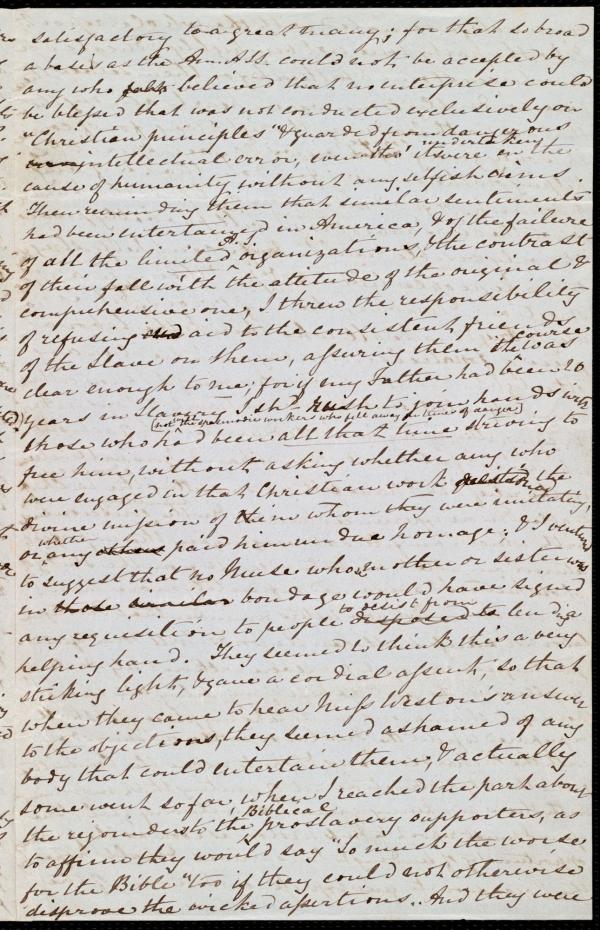 satisfactory to a great many; for that so broad
a basis as the Am. A.S.S. could not be accepted by
any who felt believed that no enterprise could
be blessed that was not conducted exclusively on
"Christian principles" & guarded from dangerous
intellectual error, even tho' it were an undertaking in the
cause of humanity without any selfish aims.
Then reminding them that similar sentiments
had been entertained in America, & of the failure
of all the limited A.S. organizations, & the contrast
of their fall with the attitude of the original &
comprehensive one, I threw the responsibility
of refusing and aid to the consistent friends
of the Slave on them, assuring them the course was
clear enough to me; for if my Father had been 20
years in Slavery I shd rush to join hands with
(not the spasmodic workers who fell away in time of danger)
those who had been all that time striving to
free him, without asking whether any who
were engaged in that Christian work question'd the
divine mission of Him whom they were imitating,
or whether any others paid him undue homage; & I ventured
to suggest that no Nurse whose mother or sister was
in those similar bondage would have signed
any requisition to people to desist from disposed to lend a
helping hand. They seemed to think this a very
striking light, & gave a cordial assent, so that
when they came to hear Miss Weston's answer
to the objections, they seemed ashamed of any
body that could entertain them, & actually
some went so far, when I reached the part about
the rejoinders to the Biblical proslavery supporters, as
to affirm they would say "So much the worse
for the Bible" too if they could not otherwise
disprove the wicked assertions. And they were